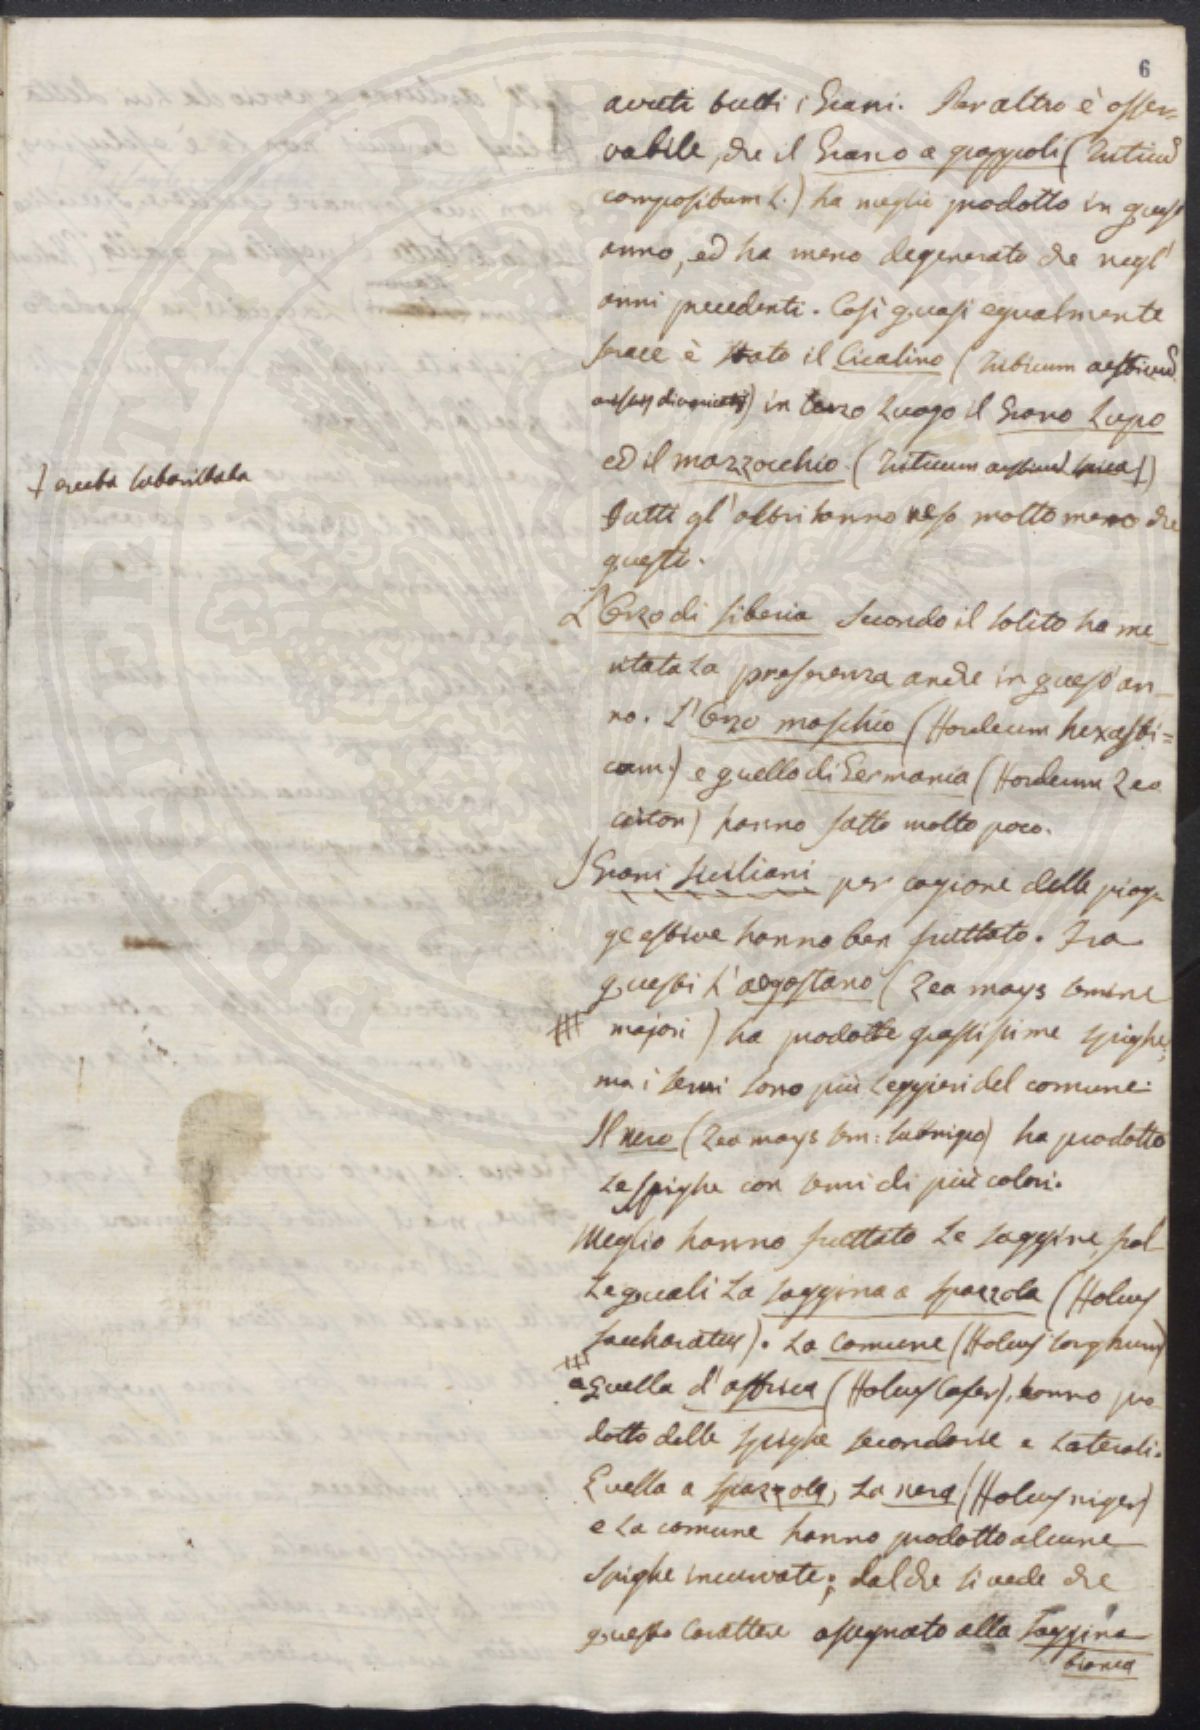 6
avuti tutti i Grani. Per altro è osser=
vabile, che il Grano a grappoli (Triticũ
compositum L.) ha meglio prodotto in quest'
anno, ed ha meno degenerato che negl'
anni precedenti. Così quasi egualmente
ferace è stato il Cicalino (Triticum aestivũ
) in terzo luogo il Grano Lupo
ed il mazzocchio (Triticum aestivũ spica †)
† erecta subaristata
Tutti gl'altri hanno reso molto meno che
questi.
L'Orzo di Siberia secondo il solito ha me-
ritata la preferenza anche in quest'an-
no. L'Orzo maschio (Hordeum hexasti=
cum.) e quello di Germania (Hordeum Zeo
criton) hanno fatto molto poco.
I Grani Siciliani per cagione delle piog-
ge estive hanno ben fruttato. Fra
questi l'aogostano (Zea mays semine
majori) ha prodotte grossissime spighe,
ma i semi sono più leggieri del comune.
Il nero (Zea mays sem: subnigro) ha prodotto
le spighe con semi di più colori.
Meglio hanno fruttato le saggine, fral
le quali la saggina a spazzola (Holcus
saccharatus). La comune (Holcus sorghum)
e quella d'affrica (Holcus Cafer), hanno pro
dotto delle spighe secondarie e laterali.
Quella a spazzola, la nera (Holcus niger)
e la comune hanno prodotto alcune
spighe incurvate; dal che si vede che
questo carattere assegnato alla saggina
bianca